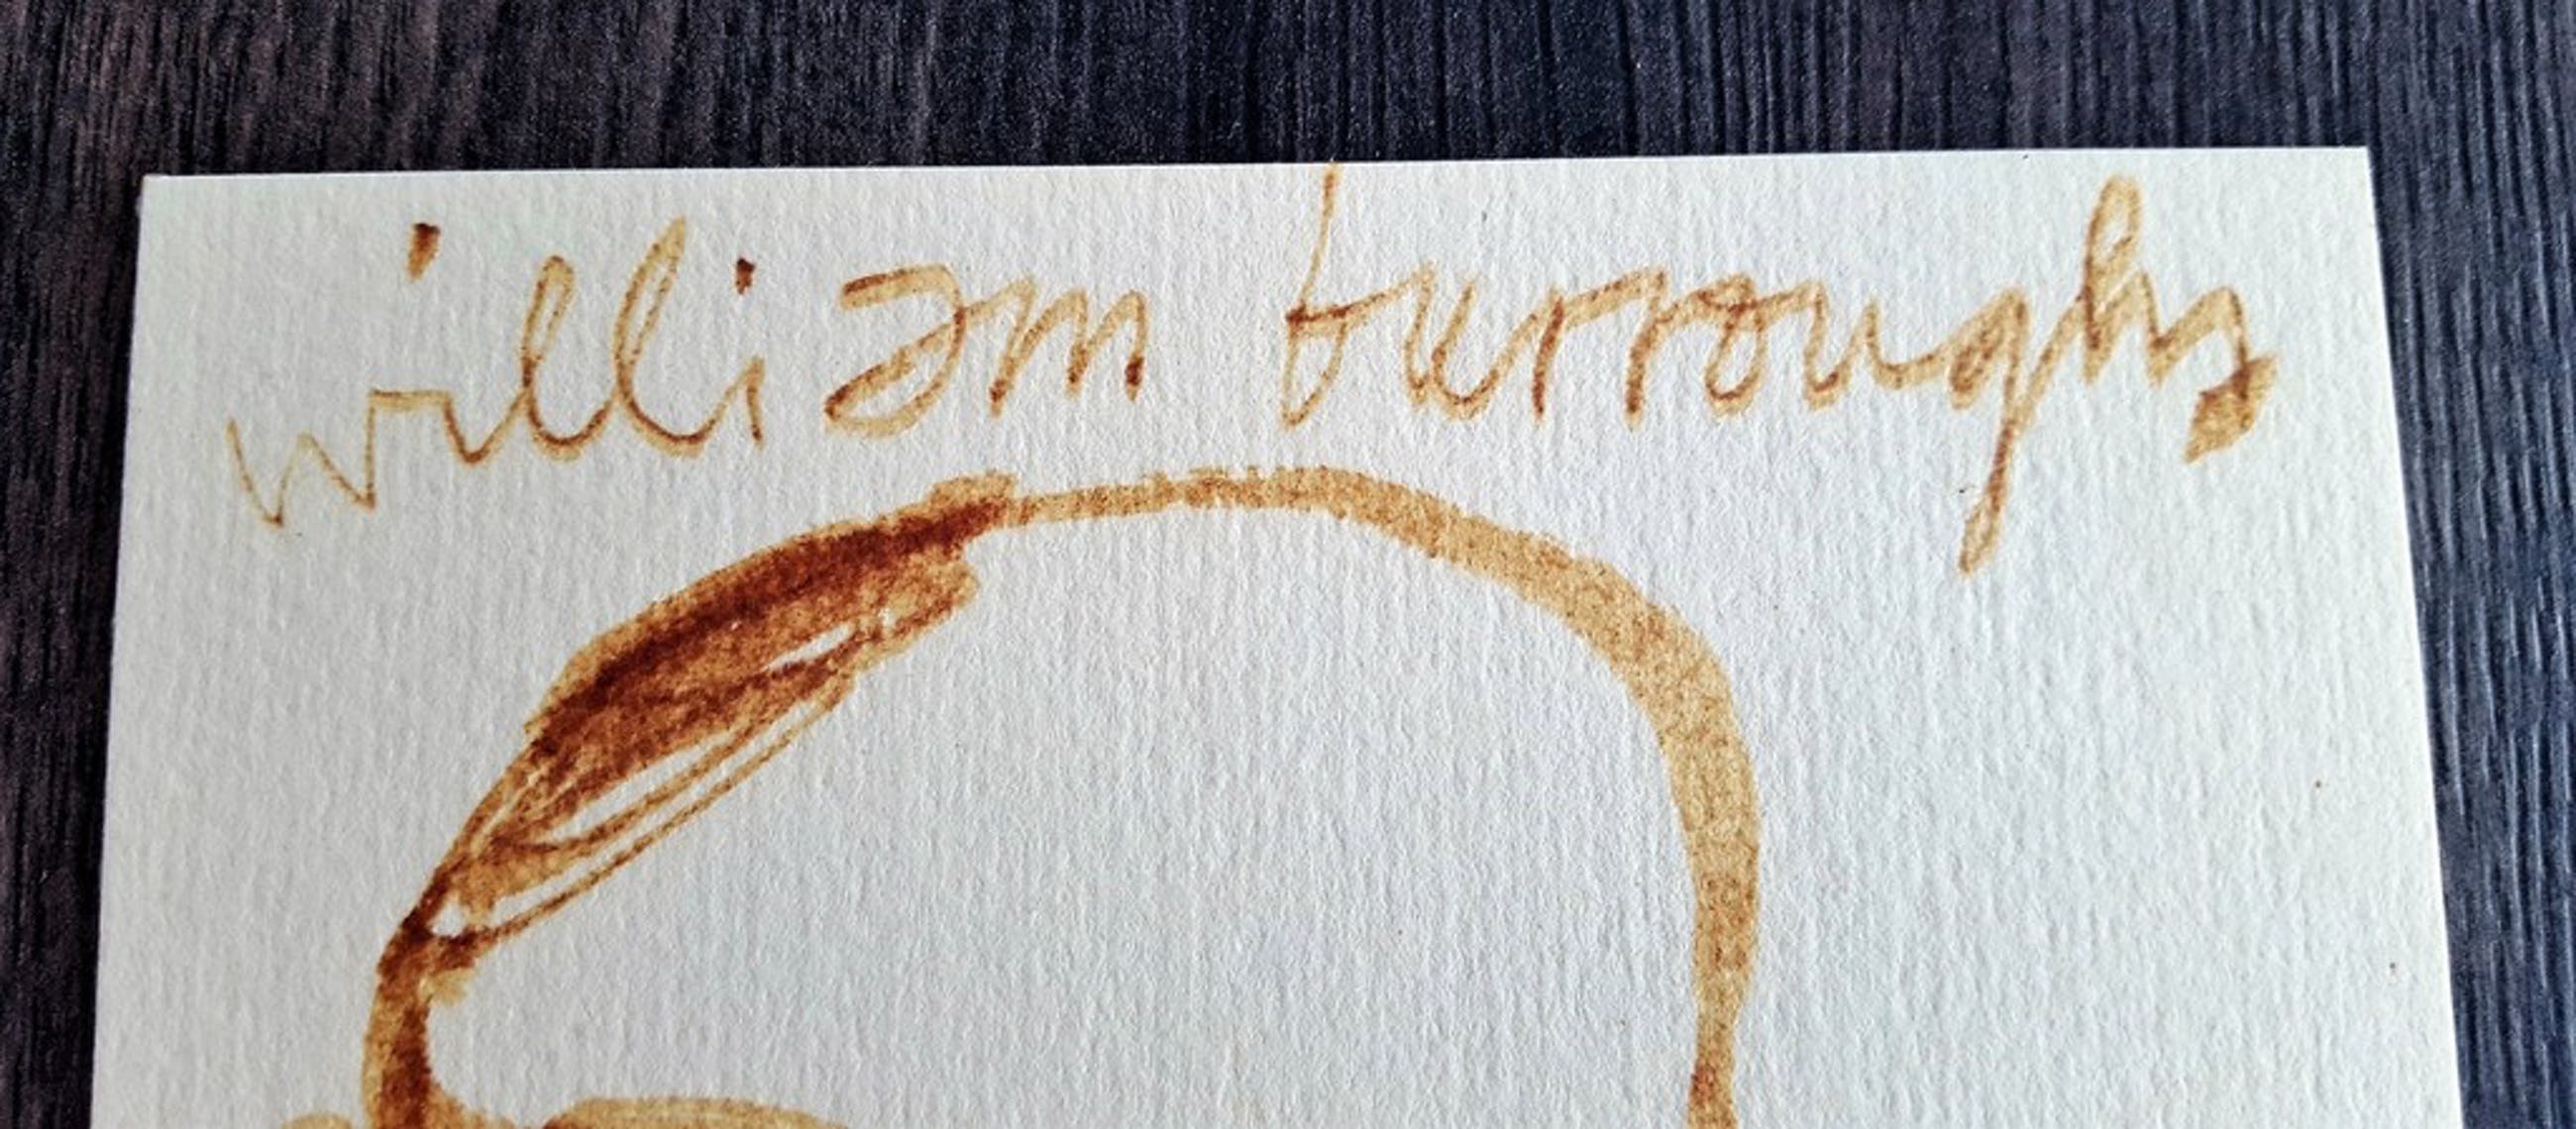 william burroughs